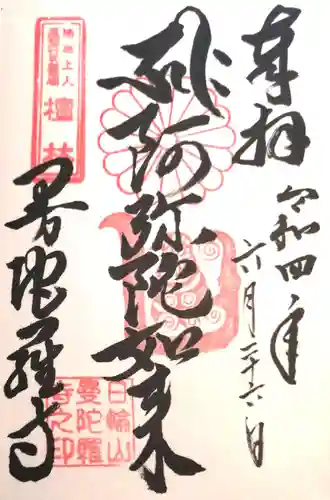 奉拝
令和四年
六月二十六日
阿弥陀如来
曼陀羅寺
日輪山
曼陀羅
寺之印